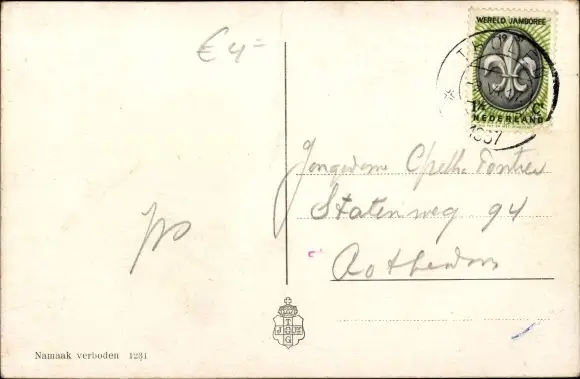 € 4=
WERELD JAMBOREE
1½ Ct
NEDERLAND
1937
Jongedame
Statenweg 94
Rotterdam
Namaak verboden 1231